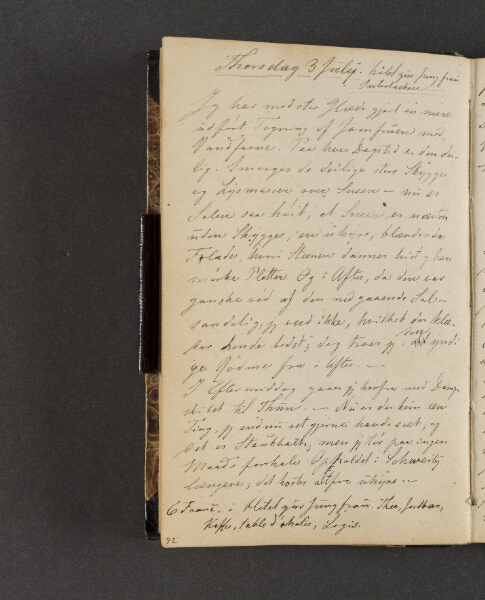 Thorsdag 3 Juli. Hôtel zur Jungfrau
Interlachen
Jeg har med stor Glæde gjort en mere
udført Tegning af Jomfruen med
Vandfarve. Paa hver Dagstid er den dei-
lig. Imorges de deilige store Skygge
og Lysmasser over Sneen – nu er
Solen saa høit, at Sneen er næsten
uden Skygger, en uhyre, blændende
Flade, hvori Stenen danner hist og her
mørke Pletter. Og i Aftes, da den var
ganske rød af den nedgaaende Sol –
sandelig, jeg veed ikke, hvilket der klæ-
der hende bedst; dog troer jeg den yndi-
ge Rødme fra i Aftes. –
I Eftermiddag gaaer jeg herfra med Damp-
skibet til Thun. – Nu er der kun een
Ting, jeg endnu ret gjerne havde seet, og
det er Staubbach, men jeg tør paa ingen
Maade forhale Opholdet i Schweitz
længere, det koster altfor uhyre. –
6 Franc. i Hotel zur Jungfrau. Thee, Jordbær,
Kaffe, table d'ohôte, Logis.
42